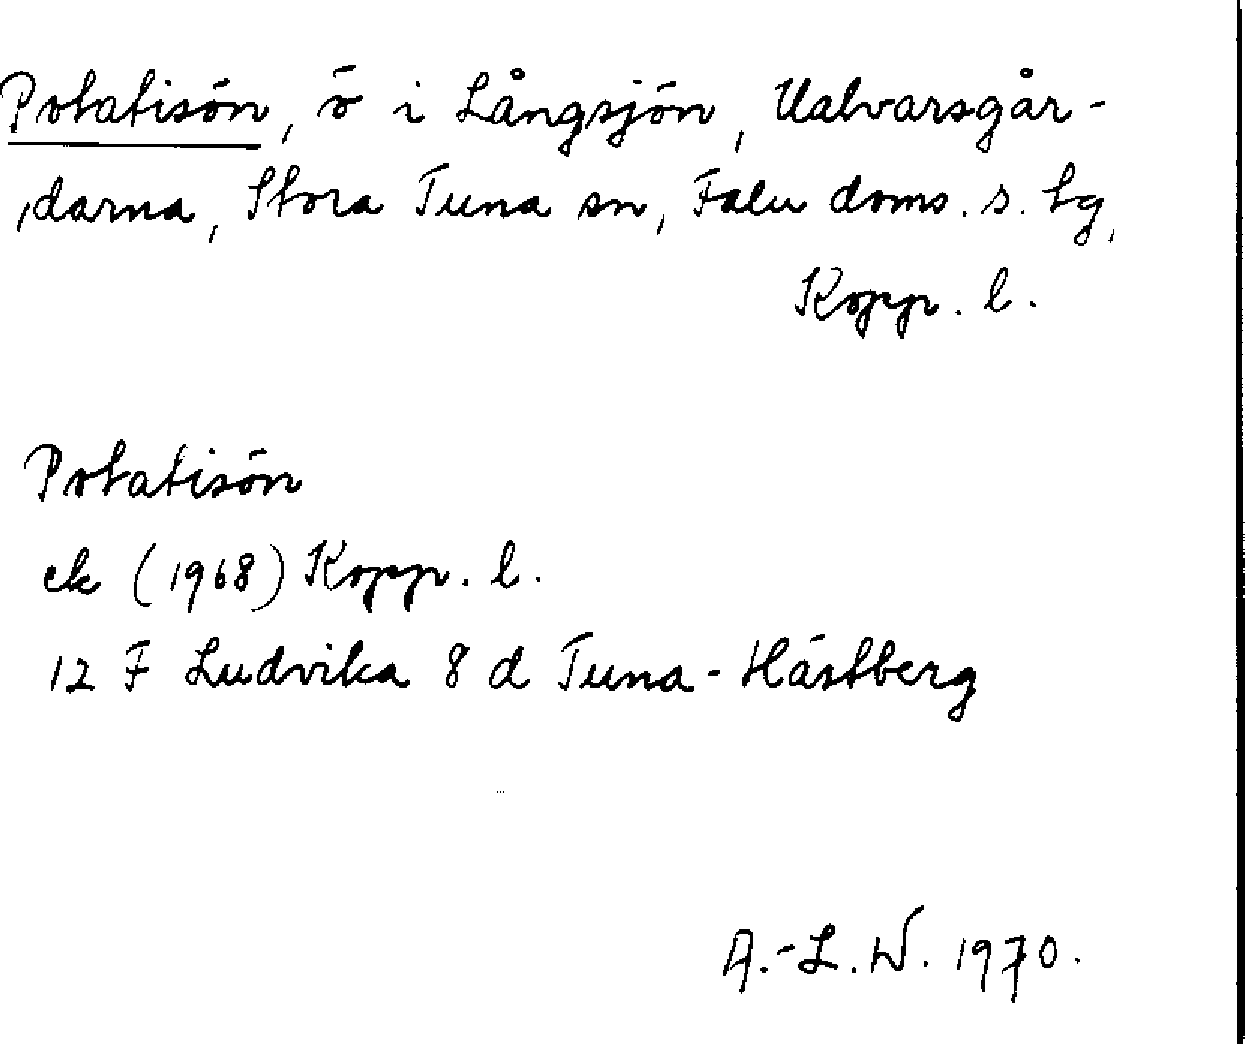 Potatisön, ö i Långsjön, Ualvarsgår-
darna, Stora Tuna sn, Falu doms. s. tg,
Kopp. l.
Potatisön
ek (1968) Kopp. l.
12 F Ludvika 8 d Tuna-Hästberg
A.-L. W. 1970.